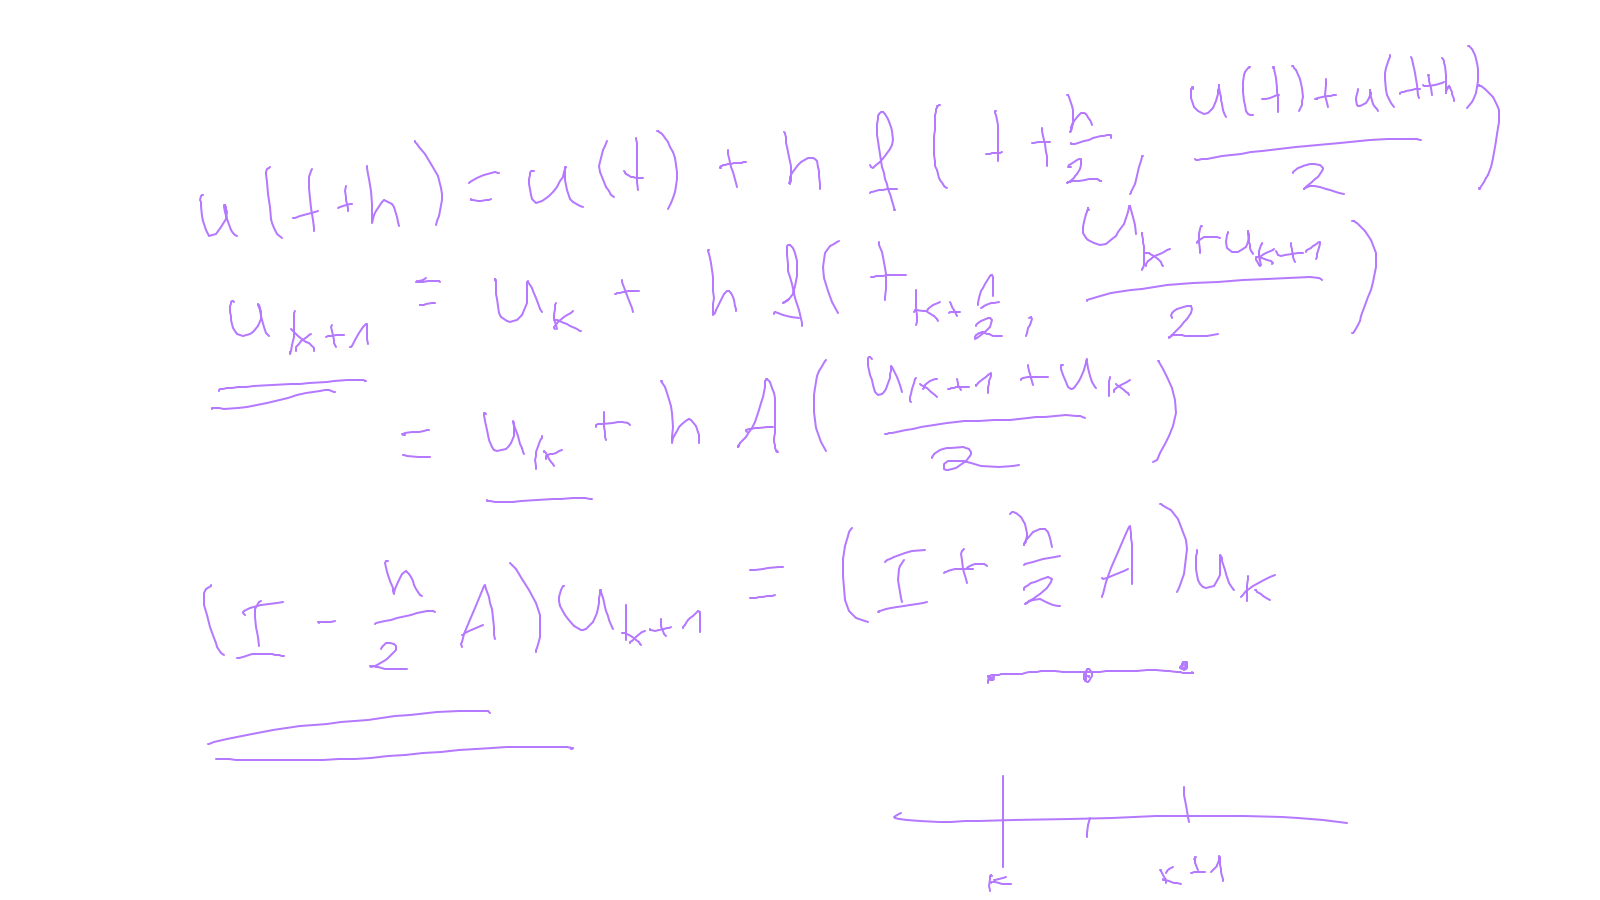 u(t+h) = u(t) + h f(t + h/2, (u(t)+u(t+h))/2)
u_{k+1} = u_k + h f(t_{k+1/2}, (u_k + u_{k+1})/2)
= u_k + h A((u_{k+1} + u_k)/2)
(I - h/2 A) u_{k+1} = (I + h/2 A) u_k
k k+1